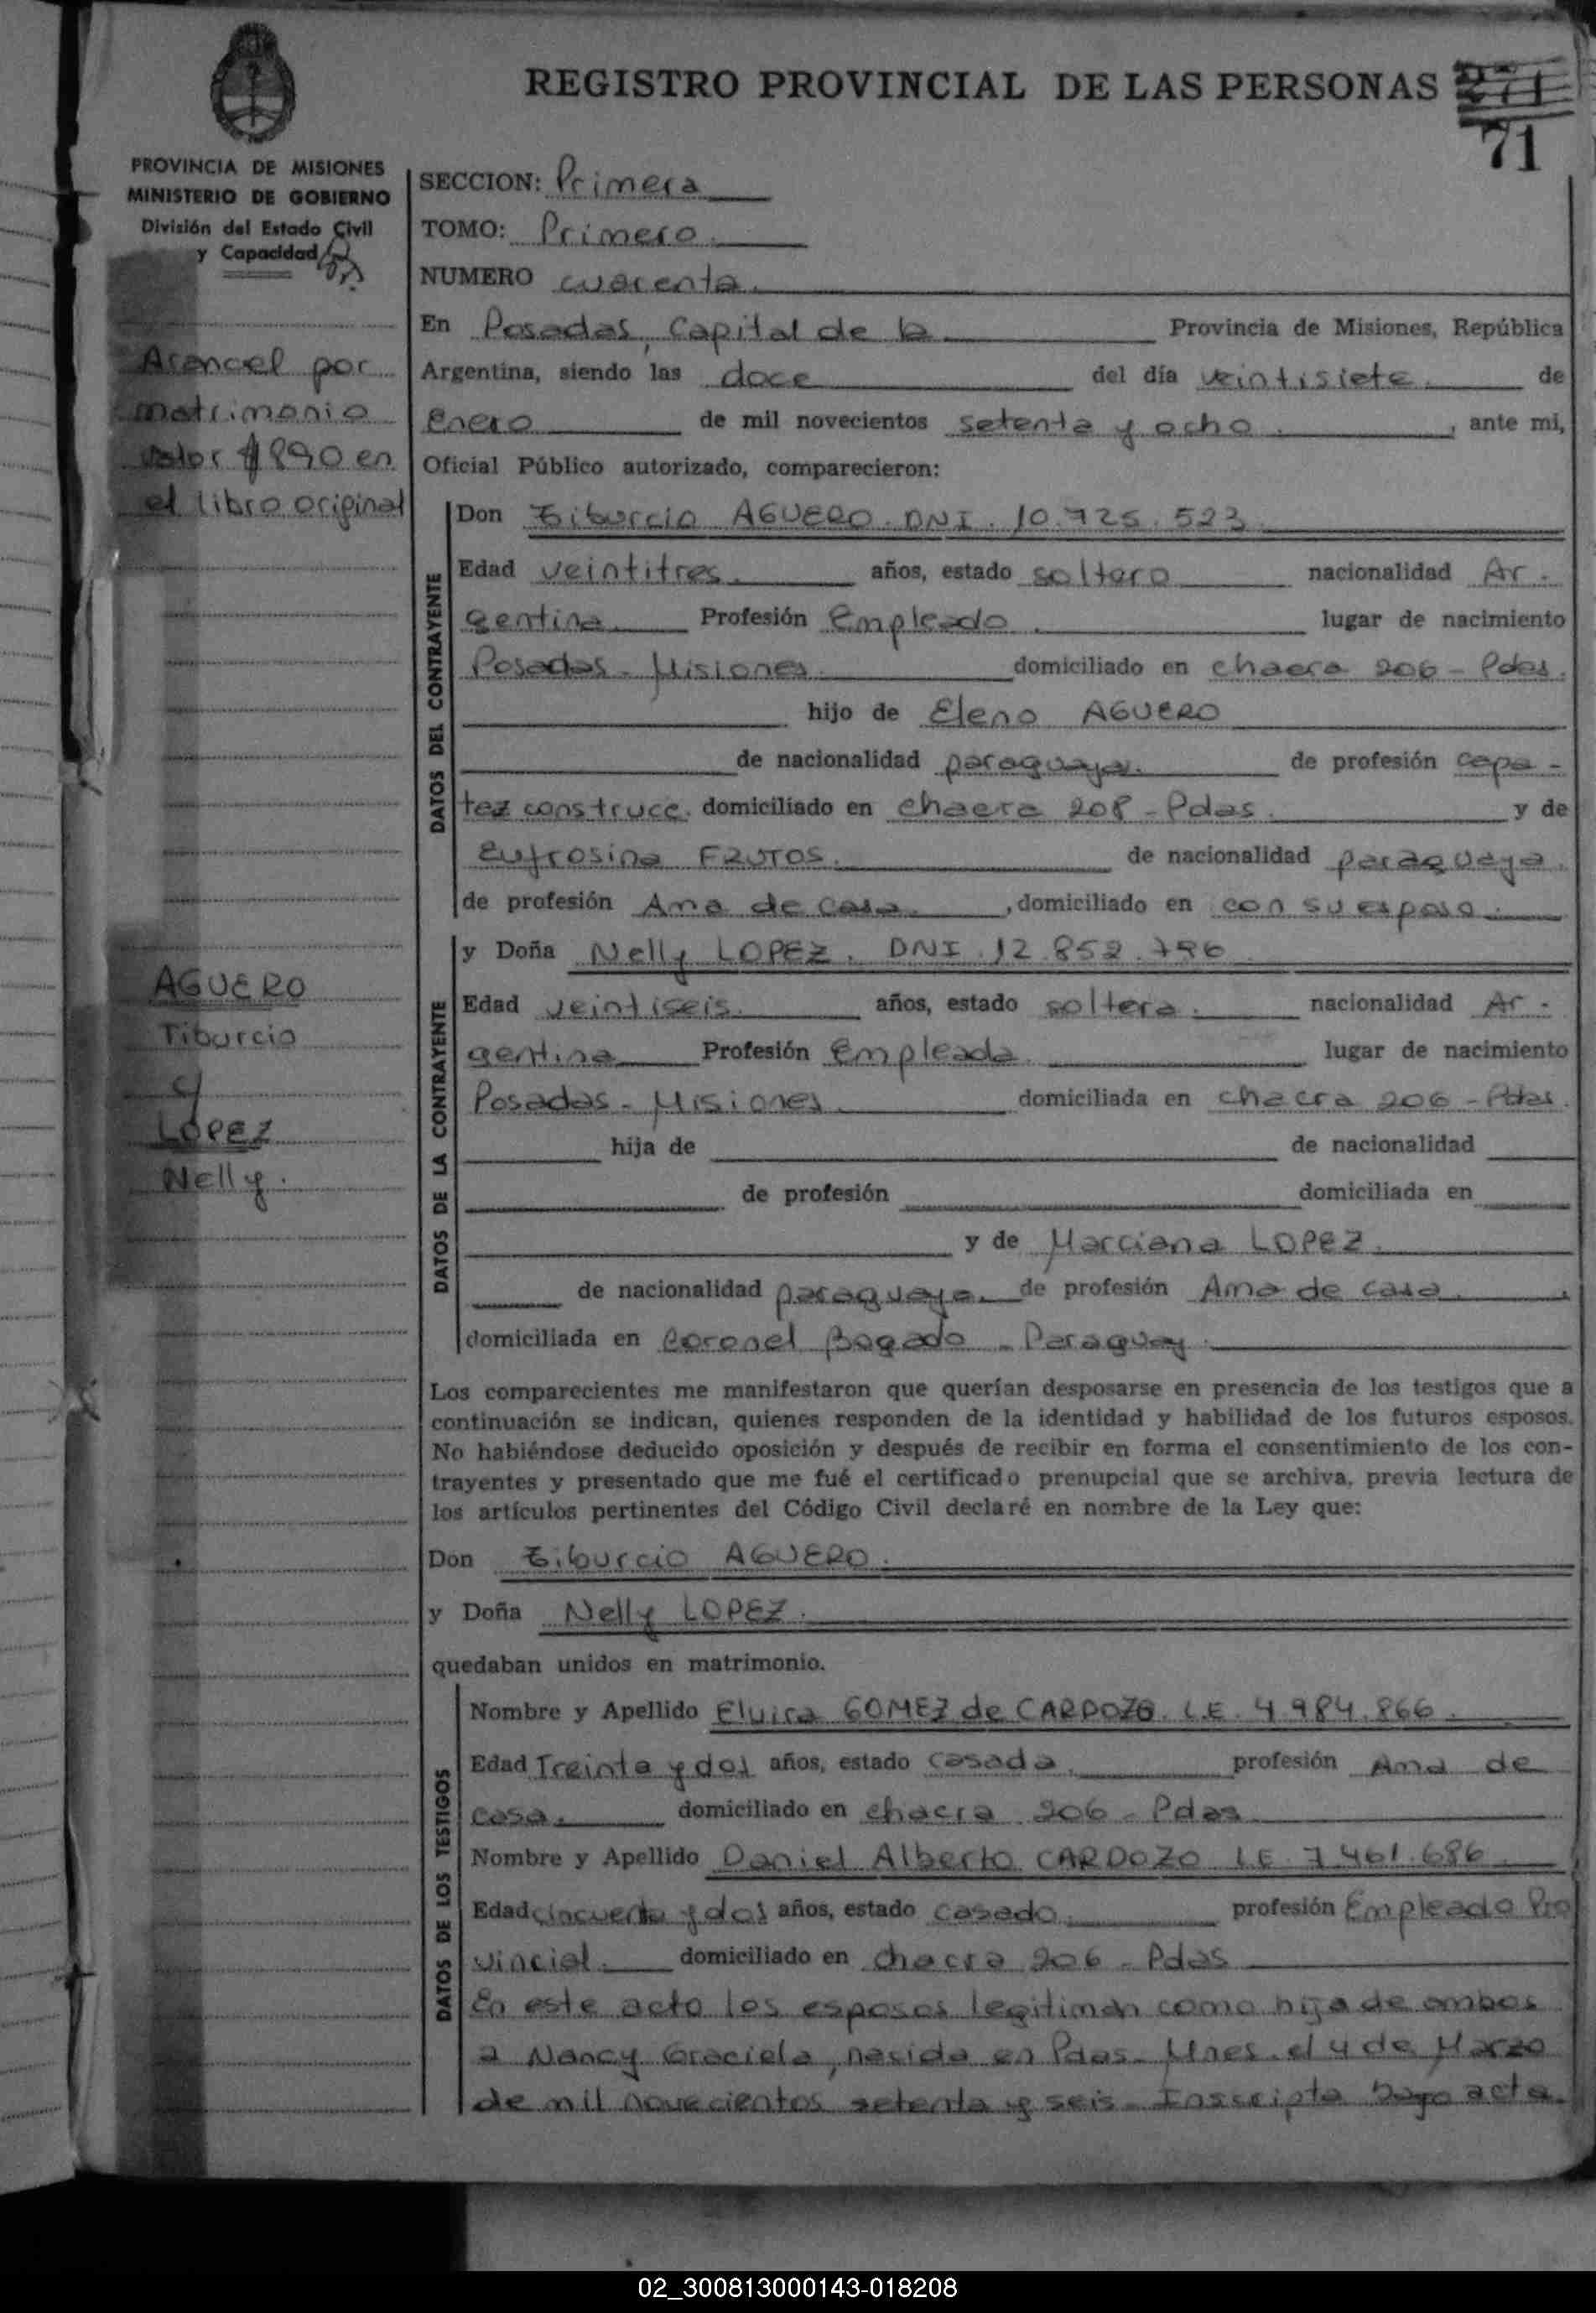 REGISTRO PROVINCIAL DE LAS PERSONAS 271
71
PROVINCIA DE MISIONES
MINISTERIO DE GOBIERNO
División del Estado Civil
y Capacidad
Arancel por
matrimonio
valor $890 en
el libro original
AGUERO
Tiburcio
y
LOPEZ
Nelly.
SECCION: Primera
TOMO: Primero.
NUMERO cuarenta.
En Posadas, Capital de la Provincia de Misiones, República
Argentina, siendo las doce del día veintisiete. de
Enero de mil novecientos setenta y ocho. , ante mi,
Oficial Público autorizado, comparecieron:
DATOS DEL CONTRAYENTE
Don Tiburcio AGUERO. DNI. 10.725.523
Edad veintitres. años, estado soltero nacionalidad Ar-
gentina. Profesión Empleado. lugar de nacimiento
Posadas - Misiones. domiciliado en chacra 206 - Pdas.
hijo de Eleno AGUERO
de nacionalidad paraguaya. de profesión Capa-
tez construcc. domiciliado en chacra 208 - Pdas. y de
Eufrosina FRUTOS. de nacionalidad paraguaya.
de profesión Ama de casa. , domiciliado en con su esposo.
DATOS DE LA CONTRAYENTE
y Doña Nelly LOPEZ. DNI. 12.852.796
Edad veintiseis. años, estado soltera. nacionalidad Ar-
gentina Profesión Empleada. lugar de nacimiento
Posadas - Misiones. domiciliada en chacra 206 - Pdas.
hija de de nacionalidad
de profesión domiciliada en
y de Marciana LOPEZ.
de nacionalidad paraguaya. de profesión Ama de casa. ,
domiciliada en Coronel Bogado - Paraguay.
Los comparecientes me manifestaron que querían desposarse en presencia de los testigos que a
continuación se indican, quienes responden de la identidad y habilidad de los futuros esposos.
No habiéndose deducido oposición y después de recibir en forma el consentimiento de los con-
trayentes y presentado que me fué el certificado prenupcial que se archiva, previa lectura de
los artículos pertinentes del Código Civil declaré en nombre de la Ley que:
Don Tiburcio AGUERO.
y Doña Nelly LOPEZ.
quedaban unidos en matrimonio.
DATOS DE LOS TESTIGOS
Nombre y Apellido Elvira GOMEZ de CARDOZO. L.E. 4.984.866.
Edad Treinta y dos años, estado casada. profesión Ama de
casa. domiciliado en chacra 206 - Pdas
Nombre y Apellido Daniel Alberto CARDOZO L.E. 7.461.686
Edad cincuenta y dos años, estado casado. profesión Empleado Pro
vincial. domiciliado en chacra 206 - Pdas
En este acto los esposos legitiman como hija de ambos
a Nancy Graciela, nacida en Pdas. Mnes. el 4 de Marzo
de mil novecientos setenta y seis - Inscripta bajo acta
02_300813000143-018208